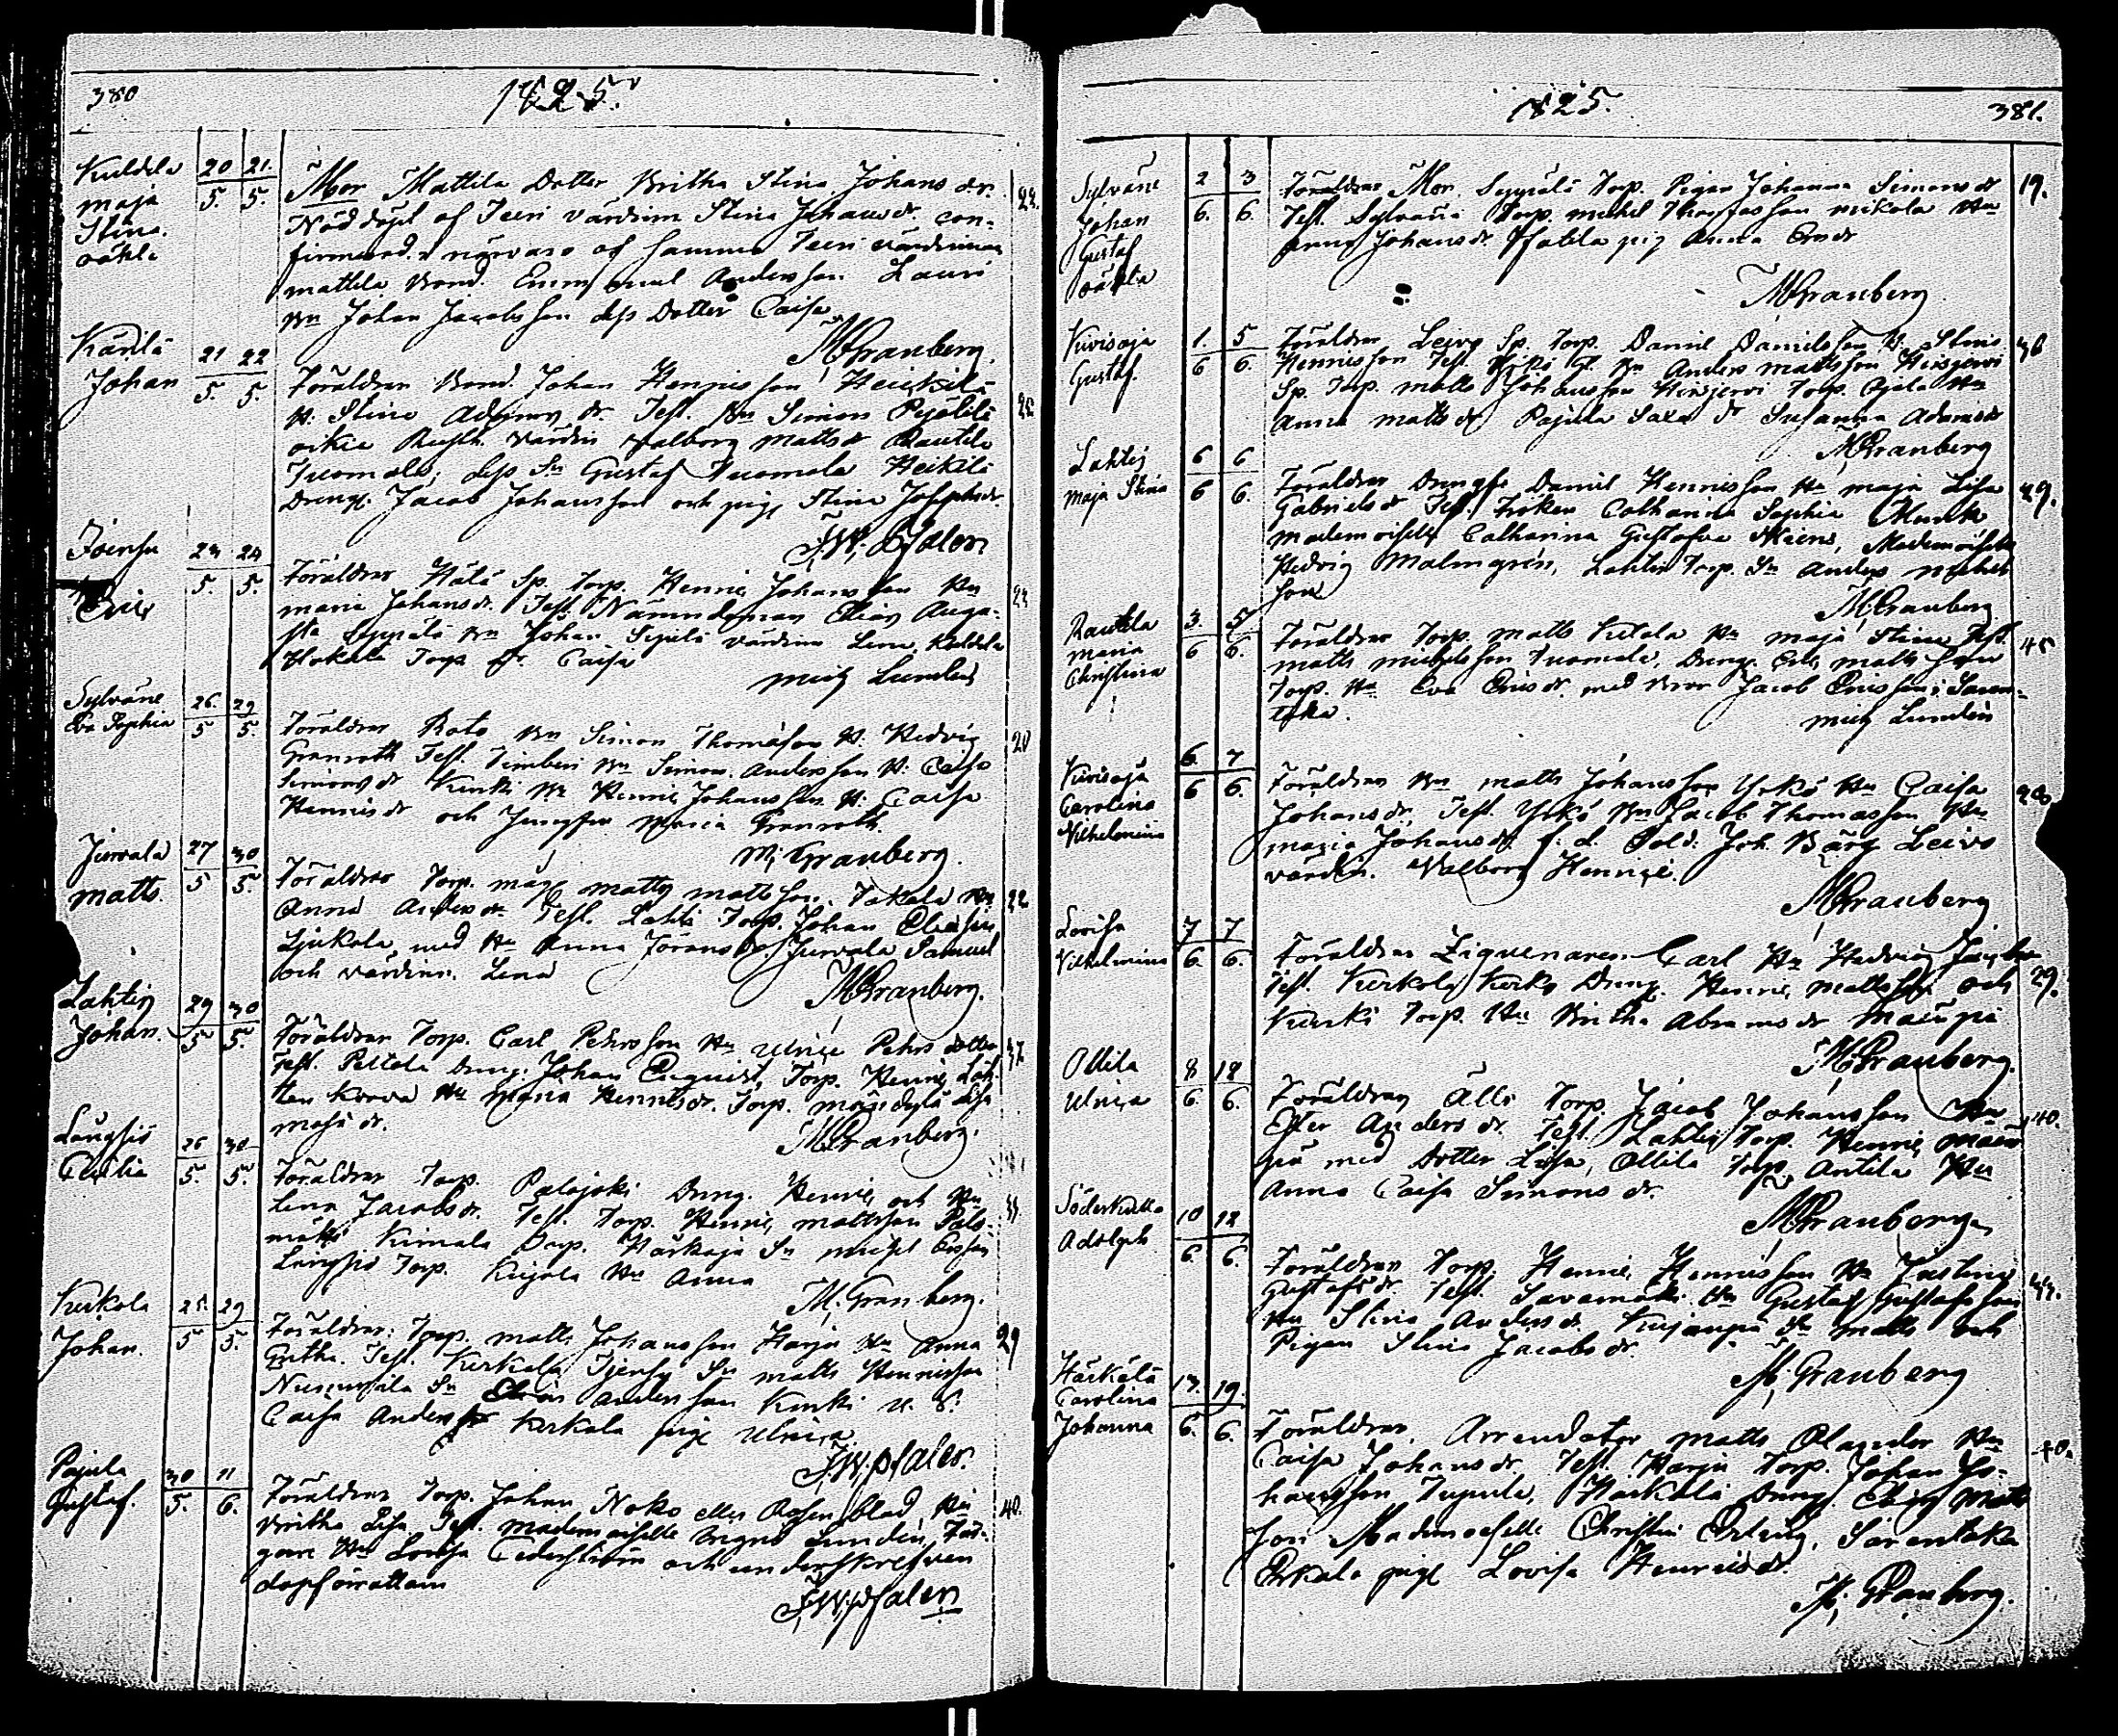 380
1825.
Kuldela 20 21.
maja 5. 5.
Stina.
oäkta
Mor Mattila Dotter Britha Stina Johans dr. 22.
Nöddöpt af Teeri värdinn Stina Johansdr. con-
firmerad i närvaro af samma Teeri värdinnan
mattila Bond. Emmanuel Andersson Lauri
Bn Johan Jacobsson dess Dotter Caisa
MGranberg.
Kärilä 21 22
Johan 5. 5.
Föräldrar Bond. Johan Henricsson Heickilä
H. Stina Adams dr. Test. Bn Simon
värdin Valborg Matts dr Rautila
Tuomala, dess Sn Gustaf Tuomala Heikilä
Dreng. Jacob Johansson och pig. Stina Josephsdr.
Joensu 23 24
5. 5.
Eric
Föräldrar Sp. Torp. Henric Johansson Hu
maria Johansdr. Test. Nämndeman Elias Auga-
sta Seppälä Bn Johan Sipilä värdinn Lena
Hakala Torp dr. Caisa
Mich Lundén
Sylväne 26. 29
Eva Sophia 5 5.
Föräldrar Rato Bn Simon Thomasson H. Hedvig 20
Granroth Test. Timberi Bn Simon Andersson H. Caisa
Simons dr Kurki Bn Henric Johansson H. Caisa
Henricsdr och Jungfru Maria Granroth.
M: Granberg.
Jurvala 27 30
matts. 5 5.
Föräldrar Torp. måg matts mattsson Takala Hu 22
Anna Andersdr Test. Lahti Torp. Johan
med Hu Anna Jöransdr. Jurvala Samuel
och värdinn. Lena
MGranberg.
Lahtis 29 30
Johan. 5 5.
Föräldrar Torp. Carl Pehrsson Hu Ulrica Pehrs dotter 37
Test. Peltola Dreng. Johan Enquist, Torp. Henric Lah-
Hu Maria Henricsdr. Torp.
dr.
MGranberg.
Längsiö 26 30
Cecilia 5. 5.
Föräldrar Torp. Palojoki Dreng. Henric och Hu
Lena Jacobsdr. Test. Torp. Henric mattsson Palo-
mäki Kimala Torp. Härkäjä Sn Michel
Längsiö Torp. Kujala Hu Anna
M. Granberg.
Kerkola 25. 29
Johan. 5 5.
Föräldrar: Torp. matts Johansson Harju Hu Anna 29
Greta. Test. Kerkola Sn matts Henricsson
Sn Andersson Kurki
Caisa Anders dr Kerkola pige Ulrica
Pajula 30 11
Gustaf. 5. 6.
Föräldrar Torp. Johan Noko eller Rosenblad Hu 40.
Britha Lisa Test. Mademoiselle Lundén, Fäd-
Hu Lovisa Cederström och underskrefven
döpförrättare
1825.
381.
Sylväne 2 3
Johan 6. 6.
Gustaf
oäkta
Föräldrar Mor. Seppälä Torp. Pigan Johanna Simons dr 19.
Test. Sylväne Torp. Michel Thomasson Mikola Hu
Anna Johansdr. pig Anna
MGranberg
Kivisoja 1. 5
Gustaf. 6 6.
Föräldrar Leivo Sp. Torp. Daniel Danielsson H. Stina 36
Test. Yrkö Bn Anders mattsson Heisjervi
Sp. Torp. matts Johansson Heisjervi Torp. Ojala Hu
Anna mattsdr Pajula dr Susanna Adamsdr
MGranberg
Lahtis 6 6
Maja Stina 6 6.
Föräldrar Drengen Daniel Henricsson Hu Maja Lisa 29.
Gabrielsdr Test. Fröken Catharina Sophia Munck
Mademoiselle Catharina Gustafva Mademoiselle
Hedvig Malmgrén, Lahtis Torp. Sn Anders Michels
son
MGranberg
Rautila 3. 5
maria 6 6.
Christina
Föräldrar Torp. matts Hu maja Stina Test. 45
matts michelsson Tuomala, Dreng. Eric matts son
Torp. Hu Eva Ericsdr. med Bror Jacob Ericsson i Saren-
taka.
Mich Lundén
Kivisoja 6. 7
Carolina 6 6.
Vilhelmina
Föräldrar Bn matts Johansson Yrkö Hu Caisa
Johansdr. Test. Yrkö Bn Jacob Thomasson Hu
maria Johansdr. f. d. Sold. Joh. Bärg Leivo
värdin. Valborg Henrici.
MGranberg
Lovisa 7 7
Vilhelmina 6. 6.
Föräldrar Ziguenaren Carl Hu Hedvig 29.
Test. Kerkola Kerko Dreng. Henric mattsson och
Kurki Torp. Hu Britha Abrams dr Mäenpä
MGranberg.
Ollila 8 12
Ulrica 6. 6.
Föräldrar Älli Torp. Jacob Johansson Hu 40.
Ester Anders dr. Test. Lahtis Torp. Henric Mäen
pä med Dotter Lisa, Ollila Torp. Antila Hu
Anna Caisa Simons dr.
MGranberg
Söderkulla 10 12
Adolph 6. 6.
Föräldrar Torp. Henric Henricsson Hu Justina 44.
Gustafsdr. Test. Savamäki Bn Gustaf Gustafsson
Hu Stina Andersdr. Kujanpä Sn matts och
Pigan Stina Jacobsdr.
M. Granberg
Härkälä 13. 19.
Carolina 6. 6.
Johanna
Föräldrar, Arrendator matts Olander Hu 40.
Caisa Johansdr. Test. Harju Torp. Johan Jo-
hansson Tupula, Härkälä Dreng. Elias matts
son Mademoiselle Christin Sarentaka
Erkala pige Lovisa Henricsdr.
M. Granberg.